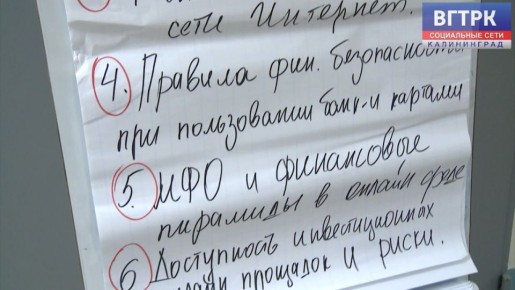 сети Интернет.
4. Правила фин. безопасности
при пользовании банк-и картами
5. МФО и финансовые
пирамиды в онлайн среде
6 Доступность инвестиционных
площадок и риски.
ВГТРК
СОЦИАЛЬНЫЕ СЕТИ
КАЛИНИНГРАД